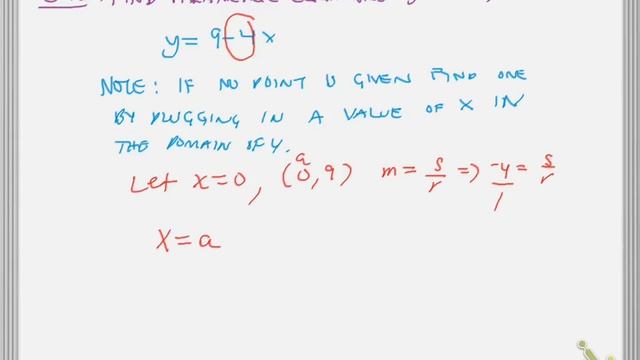 FIND
y = 9-4x
NOTE: IF NO POINT IS GIVEN FIND ONE
BY PLUGGING IN A VALUE OF X IN
THE DOMAIN OF Y.
a
Let x=0, (0,9) m = s/r => -4/1 = s/r
X = a